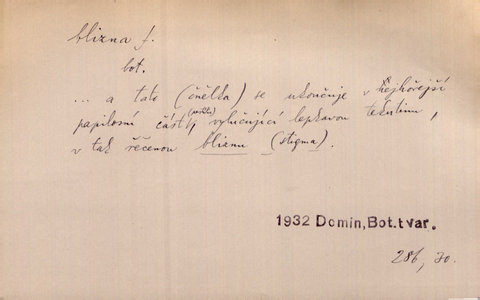 blizna f.
bot.
... a tato (čnělka) se ukončuje v nejhořejší
papilosní části, vylučující lepkavou tekutinu,
v tak řečenou bliznu (stigma).
1932 Domin, Bot. tvar.
286, 70.